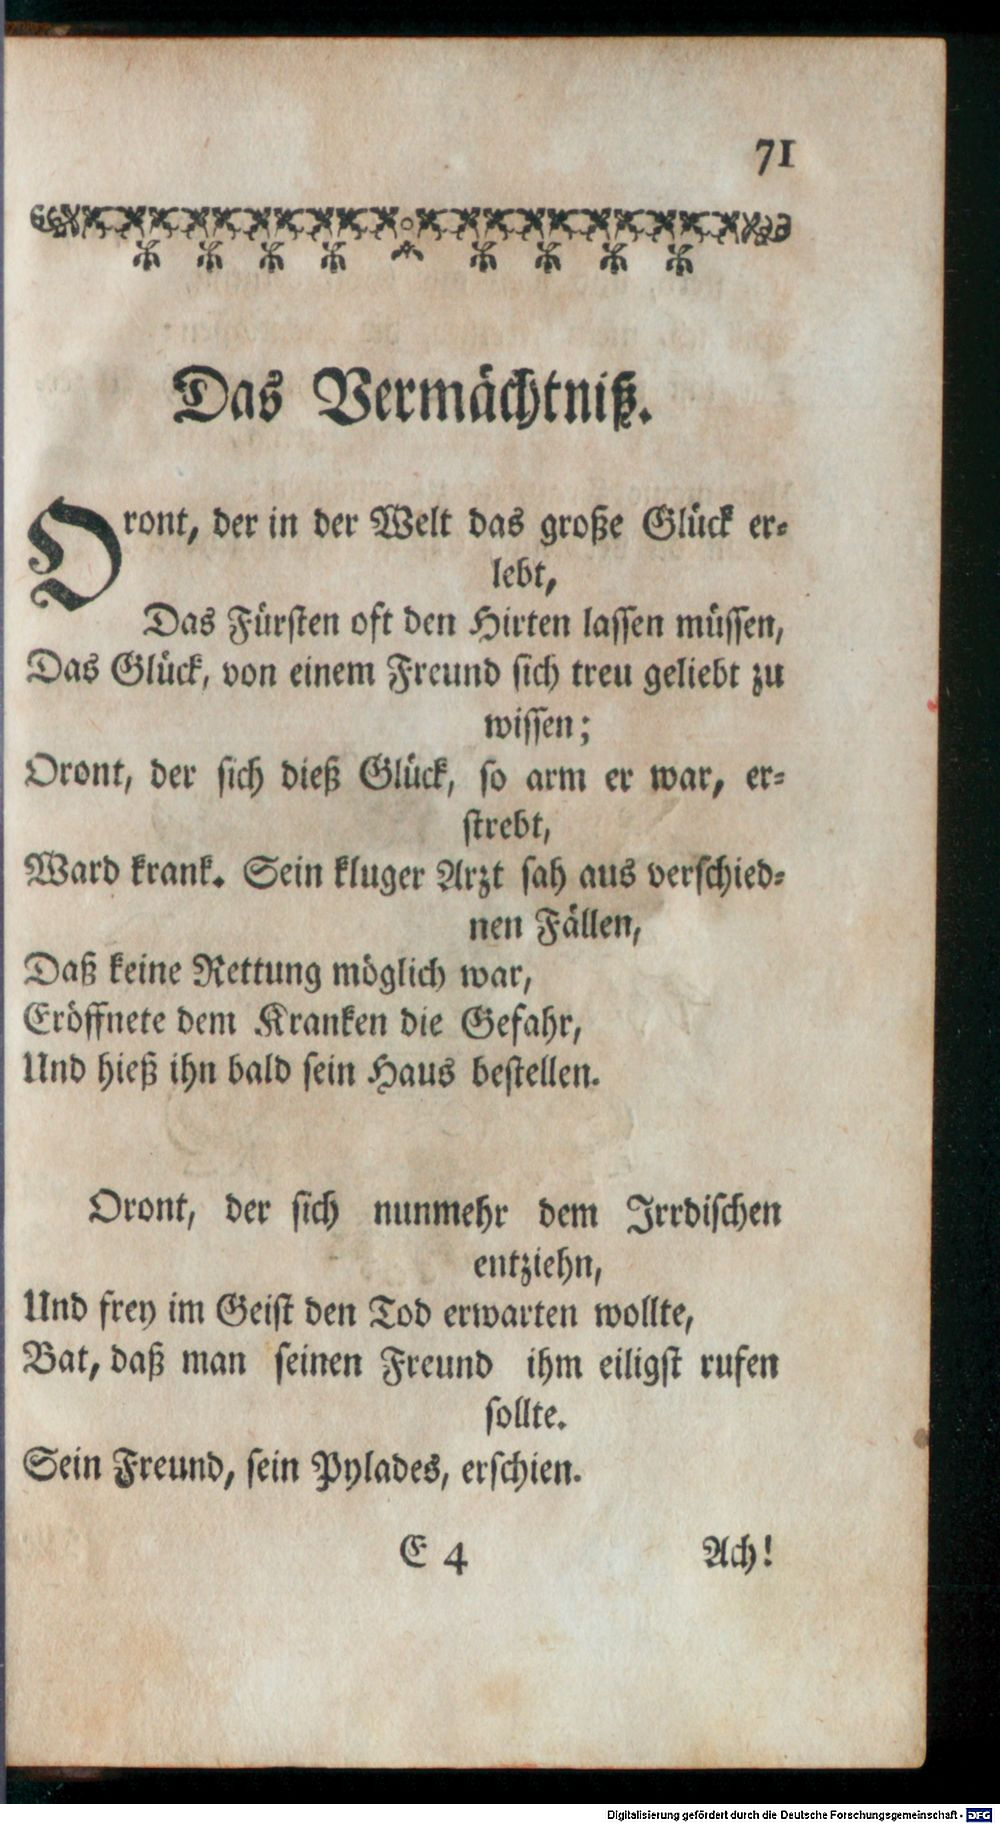 71
Das Vermächtniß.
Oront, der in der Welt das große Glück er-
lebt,
Das Fürsten oft den Hirten lassen müssen,
Das Glück, von einem Freund sich treu geliebt zu
wissen;
Oront, der sich dieß Glück, so arm er war, er-
strebt,
Ward krank. Sein kluger Arzt sah aus verschied-
nen Fällen,
Daß keine Rettung möglich war,
Eröffnete dem Kranken die Gefahr,
Und hieß ihn bald sein Haus bestellen.
Oront, der sich nunmehr dem Irrdischen
entziehn,
Und frey im Geist den Tod erwarten wollte,
Bat, daß man seinen Freund ihm eiligst rufen
sollte.
Sein Freund, sein Pylades, erschien.
E 4 Ach!
Digitalisierung gefördert durch die Deutsche Forschungsgemeinschaft - DFG